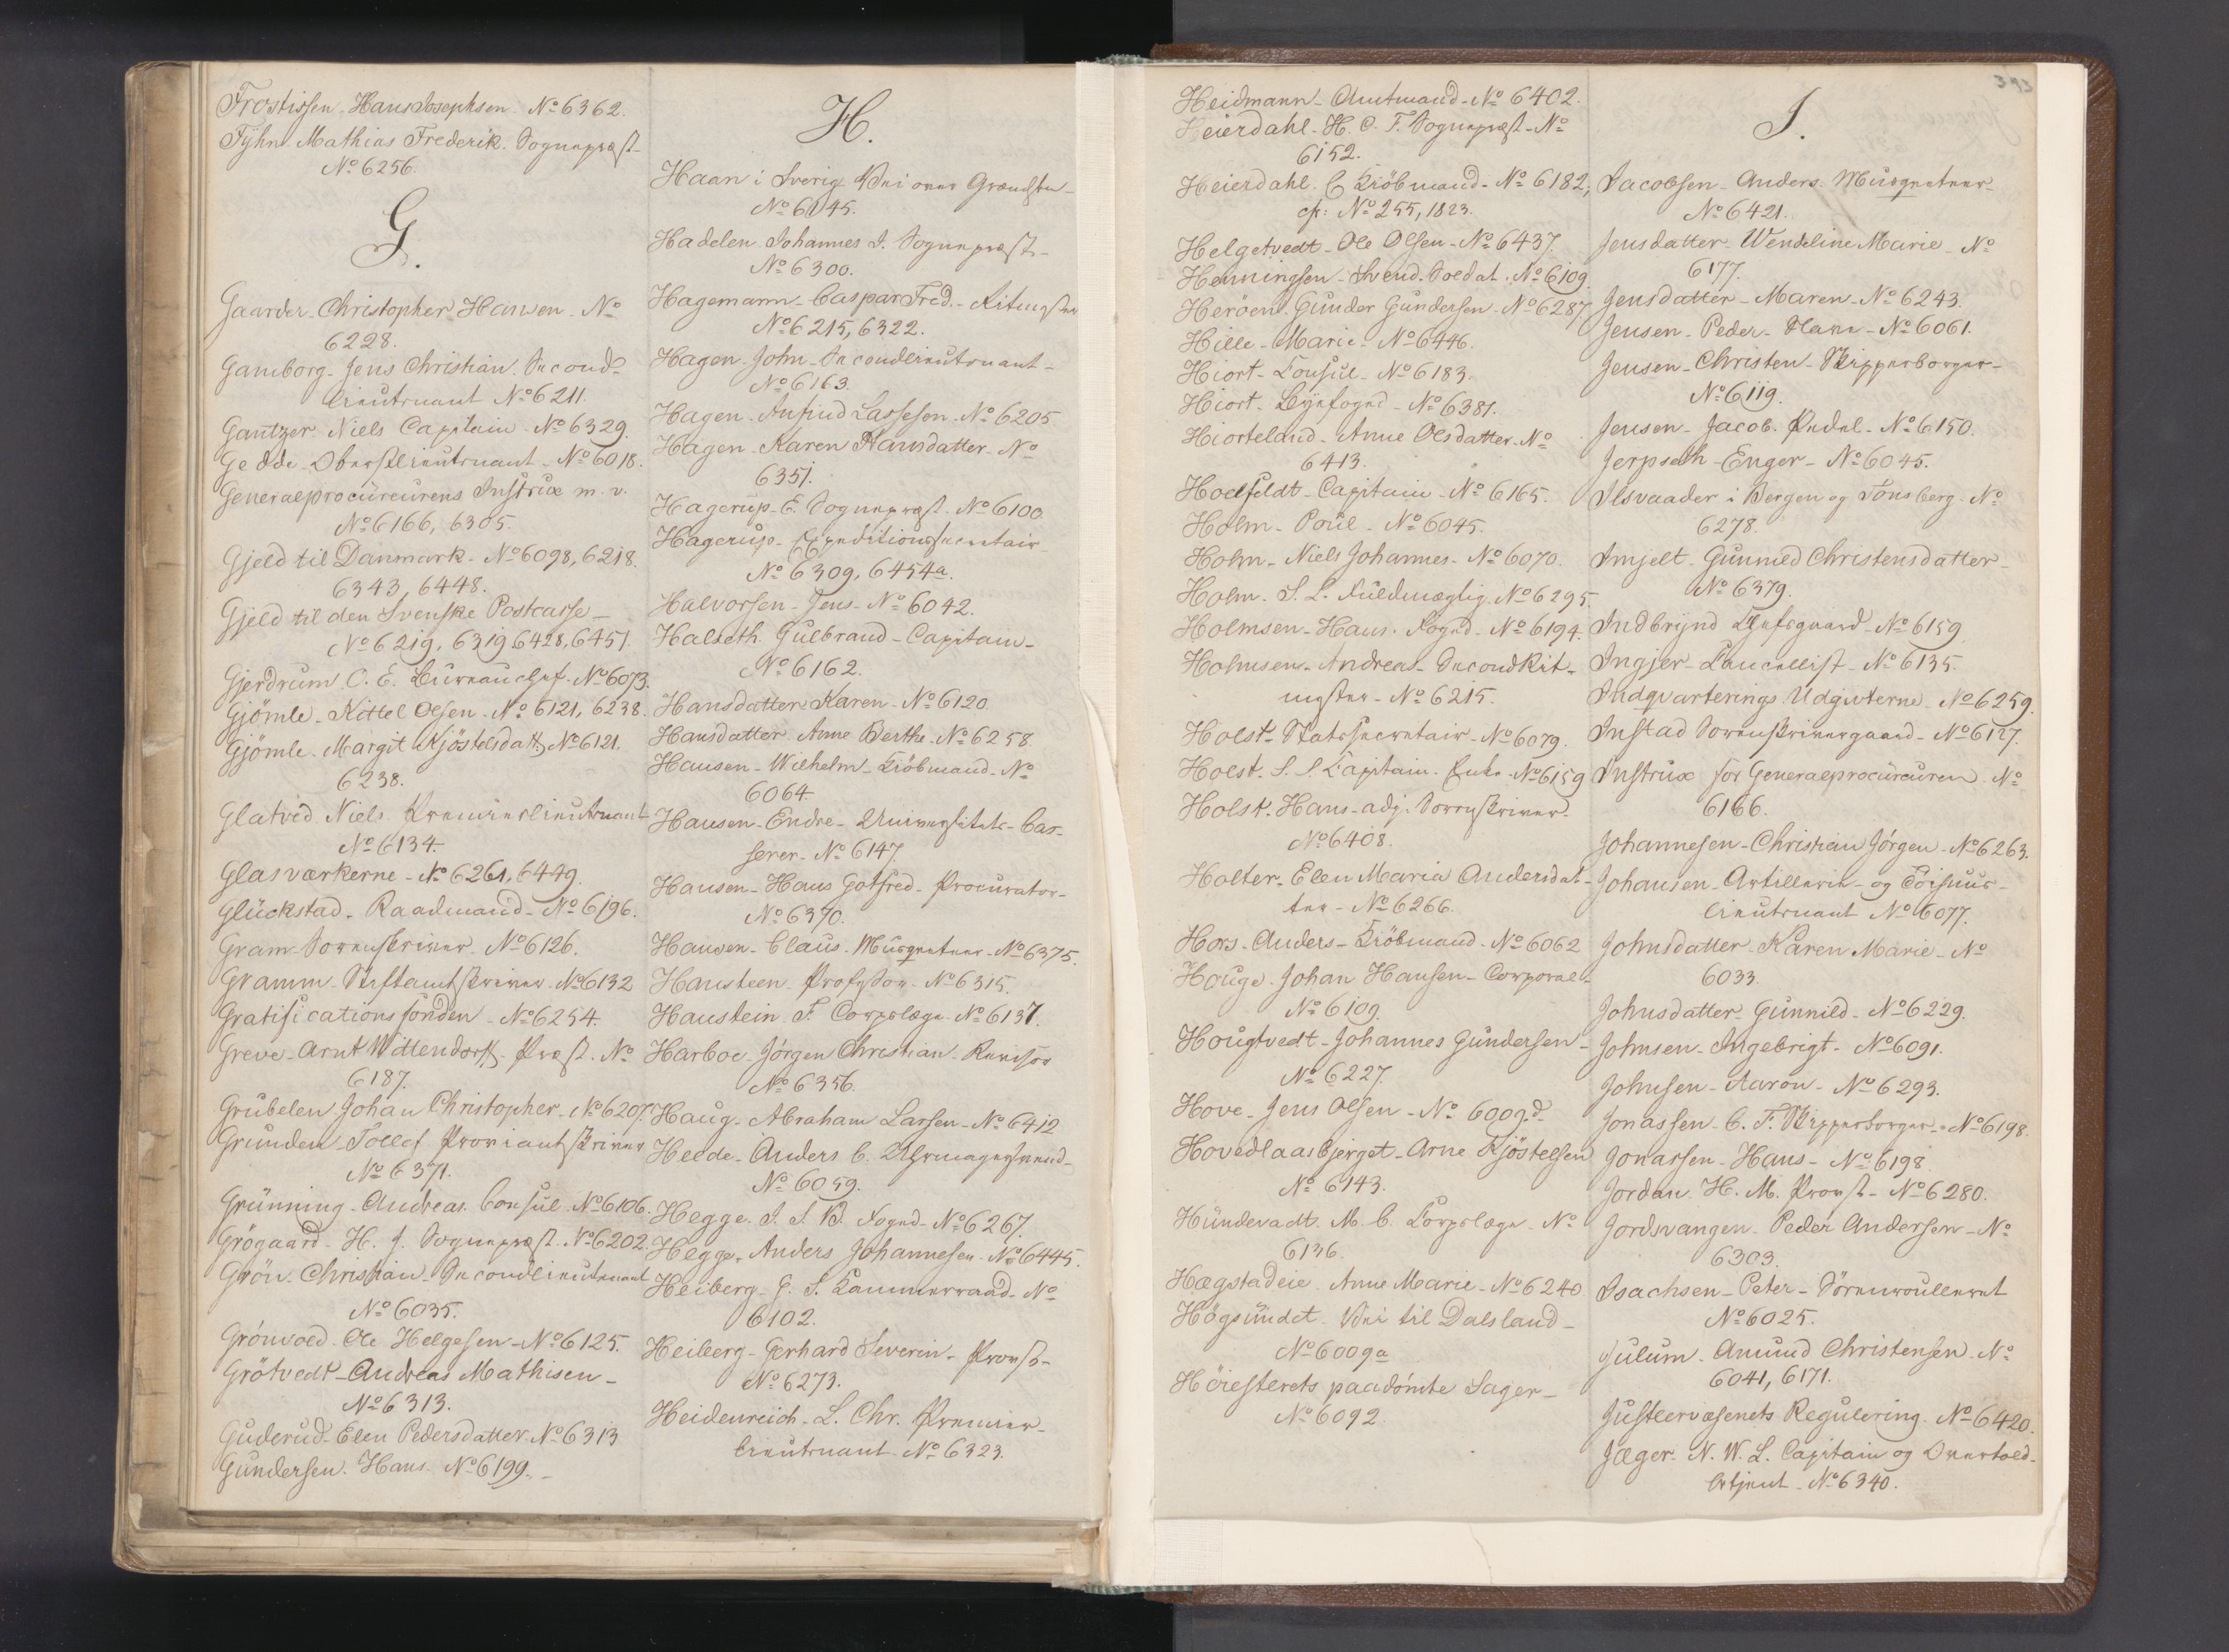 Frostissen. Hans Josephsen. No 6362.
Fÿhn. Mathias Frederik. Sognepræst-
No 6256.
G.
Gaarder. Christopher Hansen. No
6228.
Gamborg. Jens Christian. Second-
lieutenant No 6211.
Gantzer. Niels Capitain. No 6329.
Gedde. Oberstlieutenant. No 6018.
Generalprocureurens Instrux m. v.
No 6166, 6305.
Gjeld til Danmark. No 6098, 6218.
6343, 6448.
Gjeld til den Svenske Postcasse -
No 6219, 6319, 6428, 6451.
Gjerdrum C. E. Bureauchef. No 6073.
Gjömle. Kittel Olsen. No 6121, 6238.
Gjömle. Margit Kjöstelsdatt. No 6121.
6238.
Glatved Niels. Premierlieutenant
No 6134.
Glasværkerne - No 6261, 6449.
Glückstad. Raadmand - No 6196.
Gram Sorenskriver. No 6126.
Gramm. Stiftamtskriver. No 6132
Gratificationsfonden - No 6254.
Greve. Arnt Wittendorff. Præst. No
6187.
Grubelen Johan Christopher. No 6207.
Grunden. Tollef Proviantskriver
No 6371.
Grünning. Andreas. Consul. No 6106.
Grögaard. H. J. Sognepræst. No 6202.
Grön. Christian. Secondlieutenant
No 6035.
Grönvold. Ole Helgesen. No 6125.
Grötvedt. Andreas Mathisen -
No 6313.
Guderud. Elen Pedersdatter. No 6313
Gundersen. Hans. No 6199. -
H.
Haan i Sverig Vei over Grændsen -
No 6145.
Hadelen Johannes J. Sognepræst -
No 6300.
Hagemann - Caspar Fred. - Ritmester
No 6215, 6322.
Hagen. John - Secondlieutenant -
No 6163.
Hagen. Anfind Lassesen. No 6205
Hagen. Karen Hansdatter. No
6351.
Hagerup. E. Sognepræst. No 6100
Hagerup. Expeditionssecretair
No 6309, 6454a.
Halvorsen. Jens. No 6042.
Halseth. Gulbrand - Capitain -
No 6162.
Hansdatter Karen. No 6120.
Hansdatter. Anne Berthe. No 6258
Hansen - Wilhelm - Kiöbmand. No
6064.
Hansen. Endre - Universitets-Cas-
serer. No 6147.
Hansen. Hans Gotfred. Procurator -
No 6370.
Hansen. Claus. Musqueteer. No 6375.
Hansteen. Professor. No 6315.
Hanstein F. Corpslæge. No 6137.
Harboe. Jörgen Christian. Revisor
No 6356.
Haug. Abraham Larsen. No 6412
Heede. Anders C. Uhrmagersvend -
No 6059.
Hegge. J. S. B. Foged - No 6267.
Hegge. Anders Johannesen. No 6445.
Heiberg. G. S. Kammerraad. No
6102.
Heiberg. Gerhard Severin - Provst -
No 6273.
Heidenreich. L. Chr. Premier-
lieutenant. No 6323.
393
Heidmann - Amtmand - No 6402.
Heierdahl. H. C. T. Sognepræst. No
6152.
Heierdahl. C Kiöbmand - No 6182,
cfr: No 255, 1823.
Helgetvedt. Ole Olsen - No 6437.
Henningsen. Svend. Soldat. No 6109.
Heröen. Gunder Gundersen. No 6287.
Hille. Marie. No 6446.
Hiort. Consul. No 6183.
Hiort. Byefoged - No 6381.
Hiorteland. Anne Olsdatter. No
6413.
Hoelfeldt. Capitain. No 6165.
Holm. Poul. No 6045.
Holm. Niels Johannes. No 6070.
Holm. S. L. Fuldmægtig. No 6295.
Holmsen. Hans. Foged. No 6194.
Holmsen. Andreas. SecondRit-
mester. No 6215.
Holst. Statssecretair. No 6079.
Holst. S. S. Capitain. Enke. No 6159
Holst. Hans. adj. Sorenskriver.
No 6408.
Holter. Elen Maria Andersdat-
ter. No 6266.
Hors. Anders. Kiöbmand. No 6062
Houge. Johan Hansen. Corporal.
No 6109.
Hougtvedt. Johannes Gundersen -
No 6227.
Hove. Jens Olsen - No 6009d.
Hovedlaasbjerget. Arne Kjöstelsen
No 6143.
Hundevadt. M. C. Corpslæge. No
6136.
Hægstadeie. Anne Marie. No 6240.
Högsundet. Vei til Dalsland -
No 6009a
Höiesterets paadömte Sager -
No 6092.
I.
Jacobsen. Anders. Musqueteer -
No 6421.
Jensdatter Wendeline Marie. No
6177.
Jensdatter - Maren. No 6243.
Jensen. Peder. Slave - No 6061.
Jensen. Christen. Skipperborger -
No 6119.
Jensen. Jacob. Pedel. No 6150.
Jerpseth. Enger - No 6045.
Ildsvaader i Bergen og Tönsberg. No
6278.
Imjelt. Gunnild Christensdatter -
No 6379.
Indbrÿnd Chefsgaard. No 6159.
Ingjer. Cancellist. No 6135.
Indqvarterings Udgivterne. No 6259.
Instad Sorenskrivergaard. No 6127.
Instrux for Generalprocureuren. No
6166.
Johannesen. Christian Jörgen. No 6263.
Johansen. Artillerie- og Töihuus-
lieutenant No 6077.
Johnsdatter. Karen Marie. No
6033.
Johnsdatter. Gunnild. No 6229.
Johnsen. Ingebrigt. No 6091.
Johnsen. Aaron. No 6293.
Jonassen. C. F. Skipperborger. No 6198.
Jonassen. Hans. No 6198.
Jordan. H. M. Provst. No 6280.
Jordsvangen. Peder Andersen. No
6303.
Isachsen. Peter. Sörenroulleret
No 6025.
Julum. Amund Christensen. No
6041, 6171.
Justeervæsenets Regulering. No 6420.
Jæger. N. W. L. Capitain og Overtold-
betjent. No 6340.